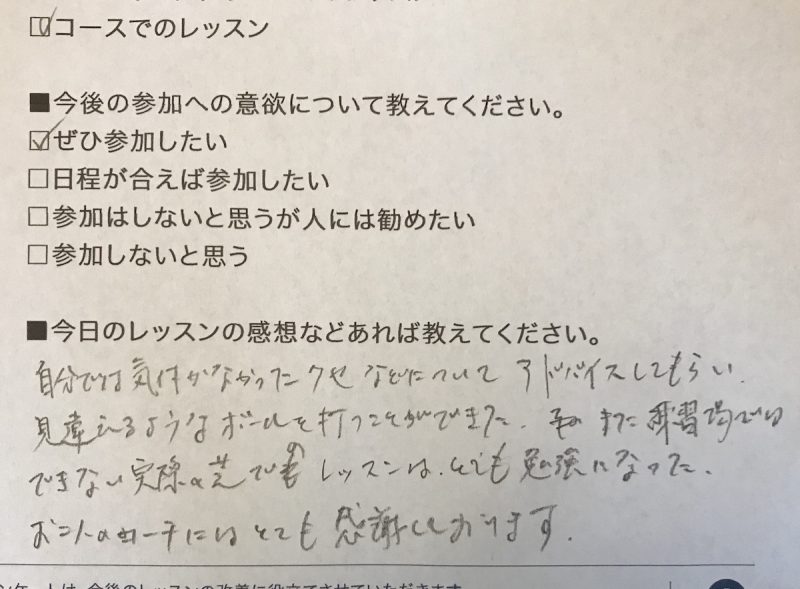 ☑コースでのレッスン
■今後の参加への意欲について教えてください。
☑ぜひ参加したい
□日程が合えば参加したい
□参加はしないと思うが人には勧めたい
□参加しないと思う
■今日のレッスンの感想などあれば教えてください。
自分では気付かなかったクセなどについてアドバイスしてもらい、
見違えるようなボールを打つことができた。また練習場では
できない実際の芝でのレッスンは、とても勉強になった。
コーチにはとても感謝しております。
ンケートは、今後のレッスンの改善に役立てさせていただきます